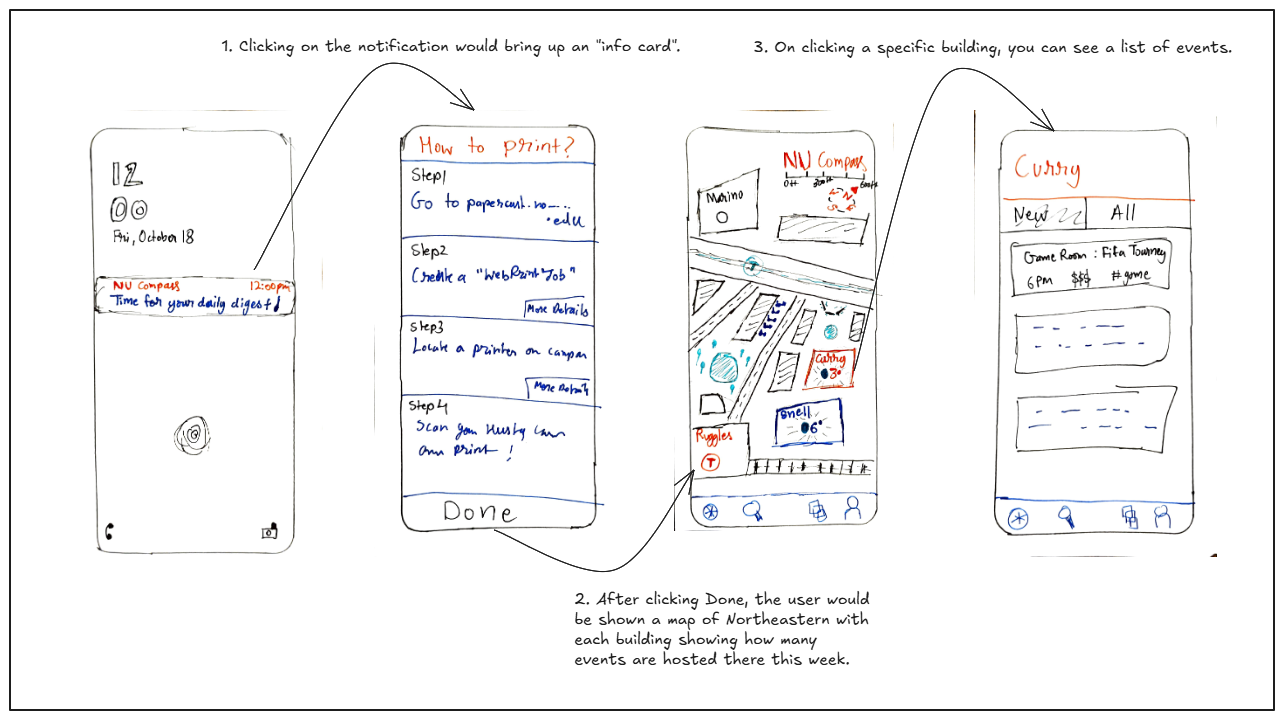 1. Clicking on the notification would bring up an "info card".
3. On clicking a specific building, you can see a list of events.
12
00
Fri, October 18
NU Compass 12:00pm
Time for your daily digest!
How to print?
Step1
Go to papercut.
.edu
Step2
Create a "WebPrint Job"
More Details
Step3
Locate a printer on campus
More Details
Step4
Scan your Husky
and print !
Done
NU Compass
0ft 300ft 600ft
N
Marino
T
Curry
3
Snell
6
Ruggles
T
Curry
New All
Game Room : Fifa Tourney
6pm $$$ #game
2. After clicking Done, the user would
be shown a map of Northeastern with
each building showing how many
events are hosted there this week.